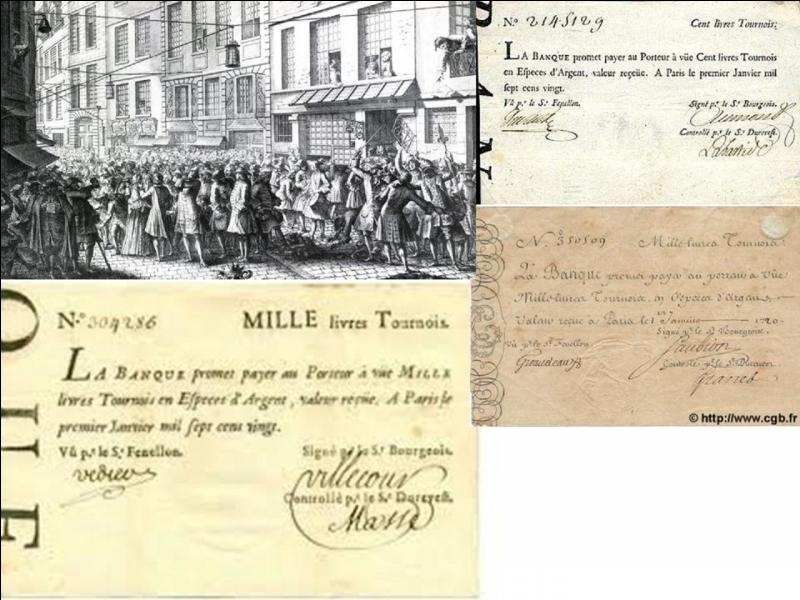 N.o 2145129 Cent livres Tournois.
LA BANQUE promet payer au Porteur à vüe Cent livres Tournois
en Especes d'Argent, valeur reçeüe. A Paris le premier Janvier mil
sept cens vingt.
Vû p.r le S.r Fenellon. Signé p.r le S.r Bourgeois.
Controllé p.r le S.r Durevest.
N.o 350509 Mille livres Tournois
La Banque promet payer au porteur à vüe
Mille livres Tournois, en Especes d'Argent,
Valeur reçüe à Paris le 1.er Janvier 1720.
Vû p.r le S.r Fenellon Signé p.r le S.r Bourgeois.
Giraudeau Controllé p.r le S.r Durevest
Granet
© http://www.cgb.fr
N.o 304286 MILLE livres Tournois.
LA BANQUE promet payer au Porteur à vüe MILLE
livres Tournois en Especes d'Argent, valeur reçeüe. A Paris le
premier Janvier mil sept cens vingt.
Vû p.r le S.r Fenellon. Signé p.r le S.r Bourgeois.
Controllé p.r le S.r Durevest.